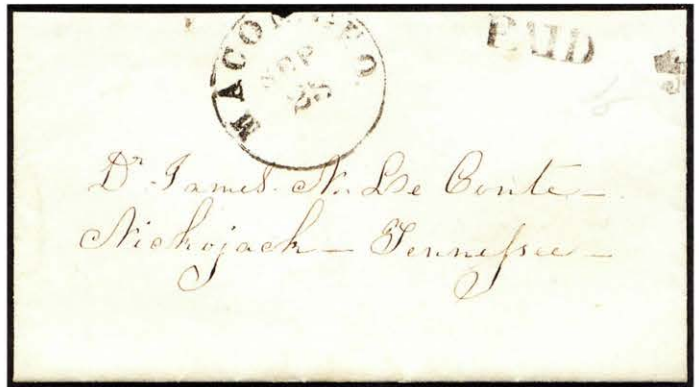 MACON GEO.
SEP
25
PAID
5
Dr. James. N. Le Conte—
Nickojack — Tennessee —